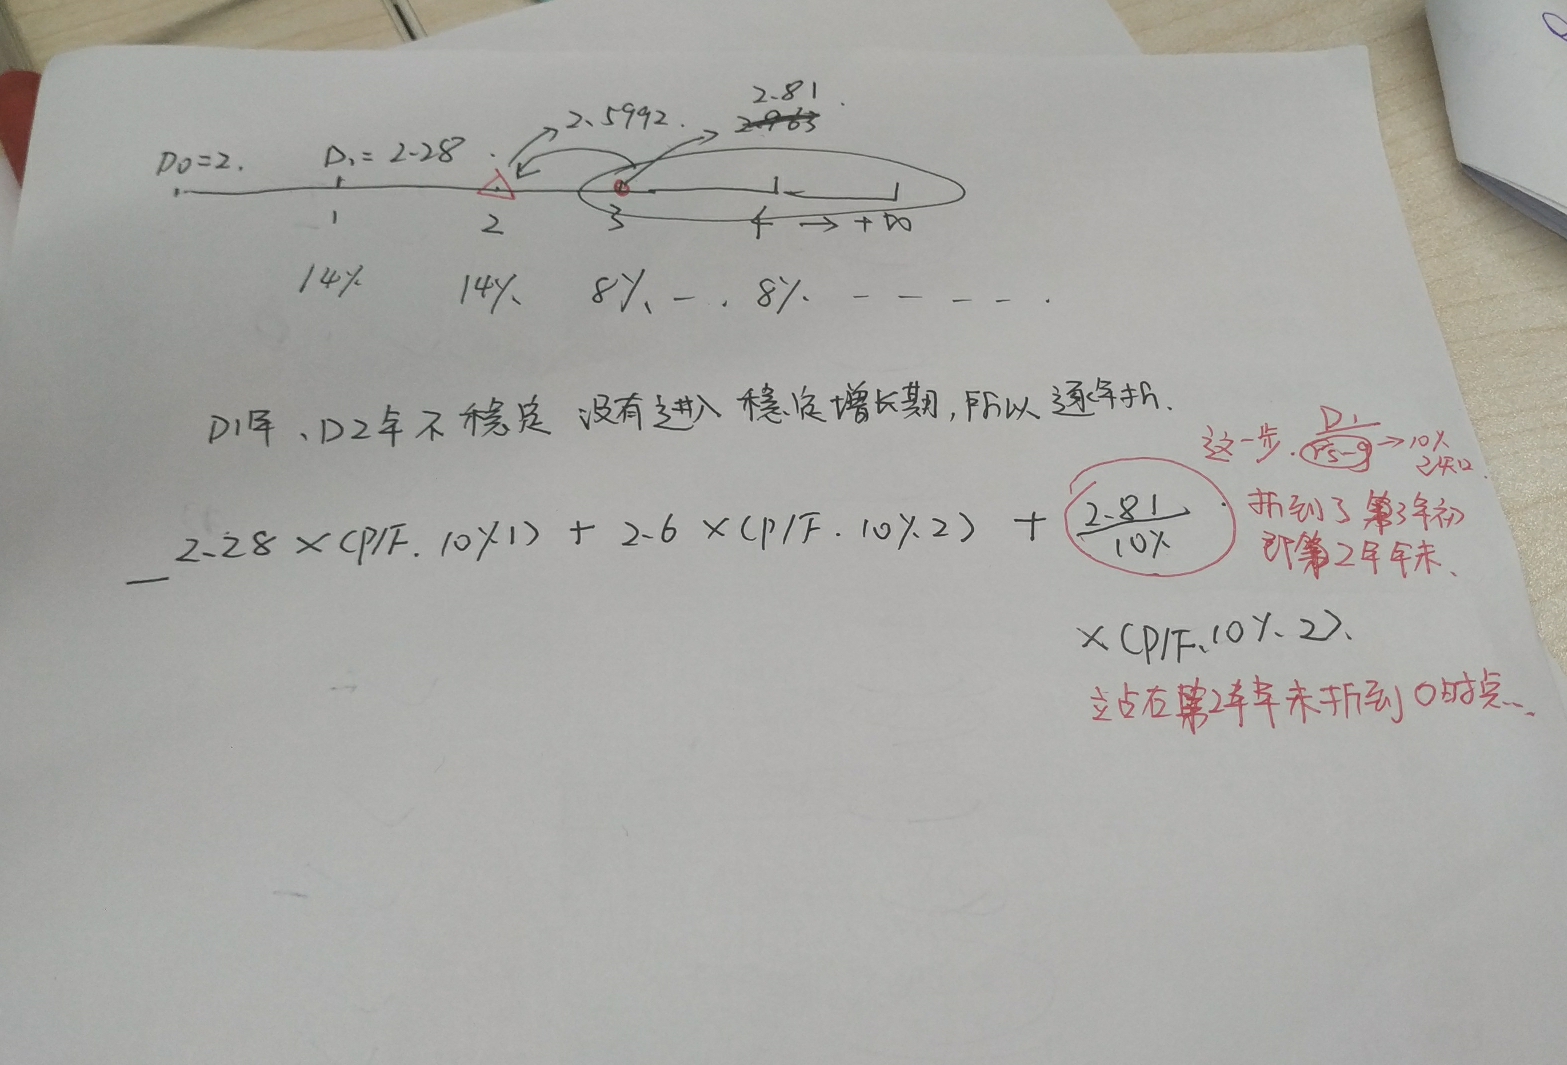 2.81
2.5992.
2.963
D0=2.
D1=2.28
1
2
3
4 → +∞
14%
14%、
8%、-.
8%. - - - - .
D1年、D2年不稳定 没有进入稳定增长期,所以逐年折.
这一步. D1/(rs-g) → 10%
已知.
2.28×(P/F. 10%1) + 2.6×(P/F. 10%.2) + 2.81/10%
折到了第3年初
即第2年年末、
×(P/F、10%、2)、
立占在第2年年末折到0时点..